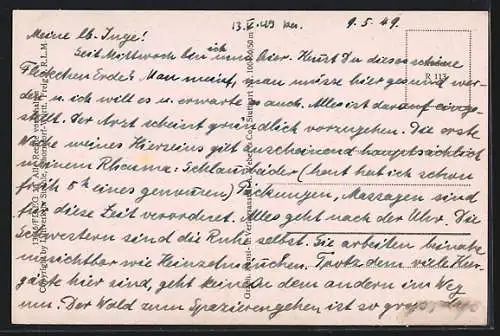 13.V.49
9.5.49.
Meine lb. Inge!
Seit Mittwoch bin ich nun hier. Kennst Du dieses schöne
Fleckchen Erde? Man meint, man müsse hier gesund wer-
den u. ich will es u. erwarte es auch. Alles ist darauf einge-
stellt. Der Arzt scheint gründlich vorzugehen. Die erste
meines Hierseins gilt anscheinend hauptsächlich
meinem Rheuma: Schlammbäder (heut hab ich schon
früh 5h eines genommen) Packungen, Massagen sind
für diese Zeit verordnet. Alles geht nach der Uhr. Die
Schwestern sind die Ruhe selbst. Sie arbeiten beinahe
unsichtbar wie Heinzelmännchen. Trotzdem viele Kur-
gäste hier sind, geht keiner dem andern im Weg
um. Der Wald zum Spazierengehen ist so gross,
R 113